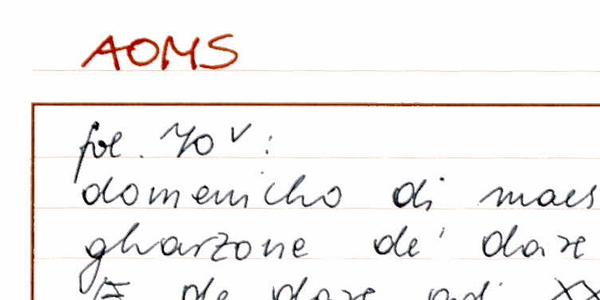 AOMS
fol. 70 v:
domenicho di maes
gharzone de' dare
de dare adi XX